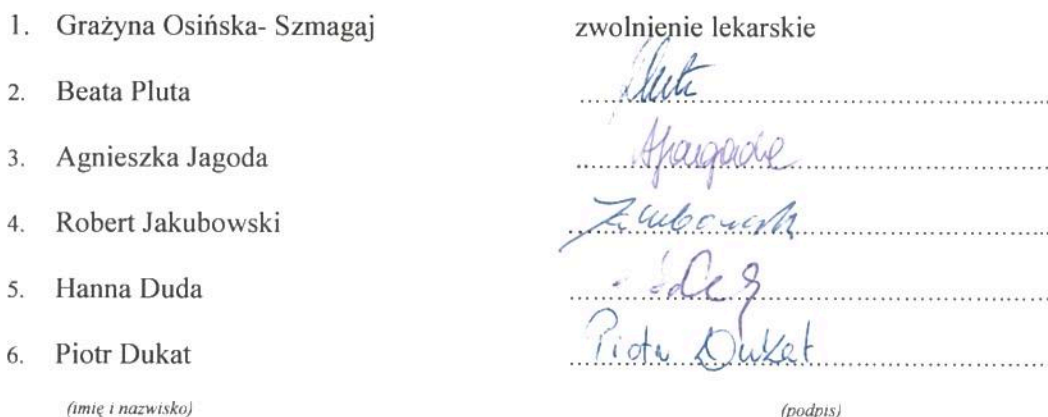 1. Grażyna Osińska- Szmagaj zwolnienie lekarskie
2. Beata Pluta
3. Agnieszka Jagoda AJagoda
4. Robert Jakubowski
5. Hanna Duda
6. Piotr Dukat Piotr Dukat
(imię i nazwisko) (podpis)